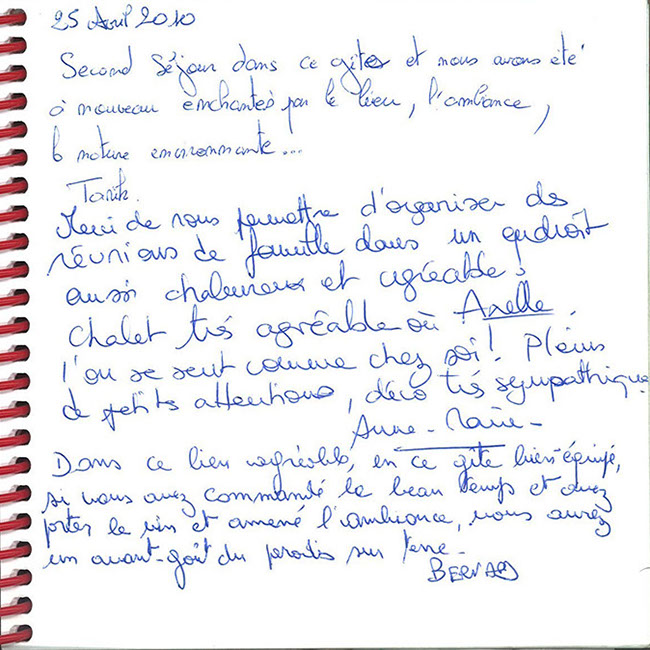 25 Avril 2010
Second séjour dans ce gite et nous avons été
à nouveau enchantés par le lieu, l'ambiance,
la nature environnante...
Tarik.
Merci de nous permettre d'organiser des
réunions de famille dans un endroit
aussi chaleureux et agréable;
Axelle
chalet très agréable où
l'on se sent comme chez soi! Pleins
de petits attentions, déco très sympathique
Anne-Marie-
Dans ce lieu agréable, en ce gîte bien équipé,
si vous avez commandé le beau temps et avez
porter le vin et amené l'ambiance, vous aurez
un avant-goût du paradis sur terre-
BERNARD